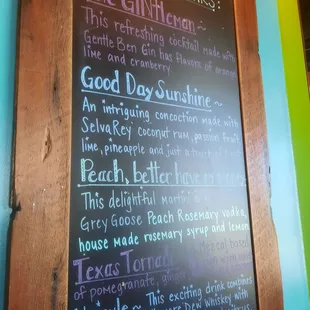 GINtleman ~
This refreshing cocktail made with
Gentle Ben Gin has flavors of orange
lime and cranberry.
Good Day Sunshine ~
An intriguing concoction made with
SelvaRey coconut rum, passion fruit
lime, pineapple and just a
Peach, better have
This delightful martini
Grey Goose Peach Rosemary vodka,
house made rosemary syrup and lemon
Texas
of pomegranate,
This exciting drink combines
Dew Whiskey with